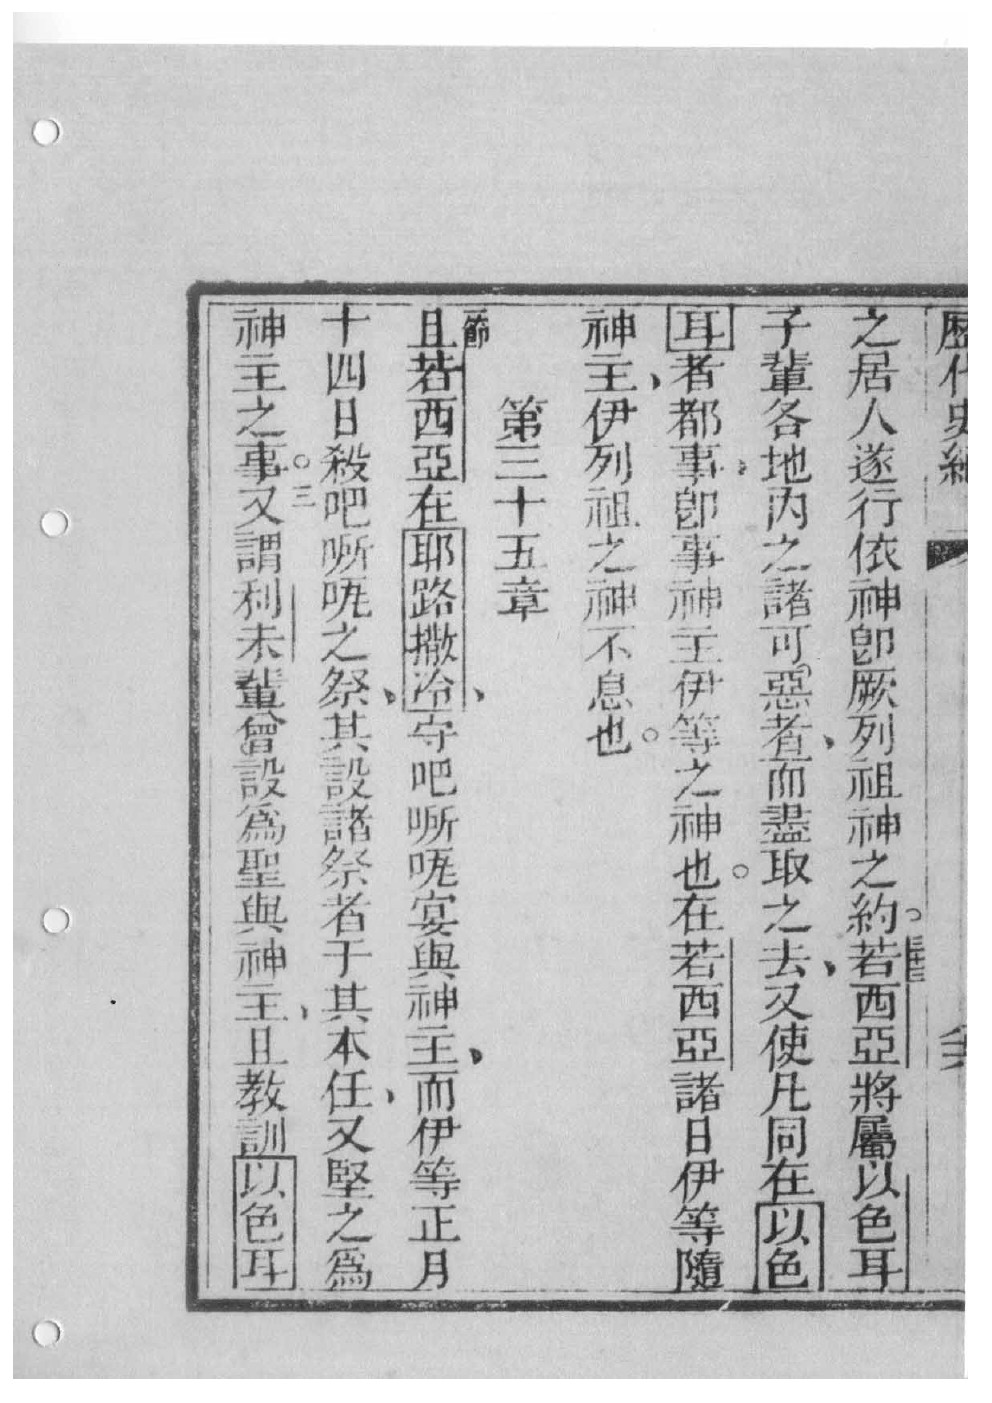 歷代史紀
之居人遂行依神卽厥列祖神之約。三十三若西亞將屬以色耳
子輩各地內之諸可惡者、而盡取之去、又使凡同在以色
耳者都事、卽事神主伊等之神也。在若西亞諸日伊等隨
神主、伊列祖之神不息也。
第三十五章
一節且若西亞在耶路撒冷、守吧𠵽咓宴與神主、而伊等正月
十四日殺吧𠵽咓之祭、其設諸祭者于其本任、又堅之爲
神主之事。三又謂利未輩曾設爲聖與神主、且教訓以色耳